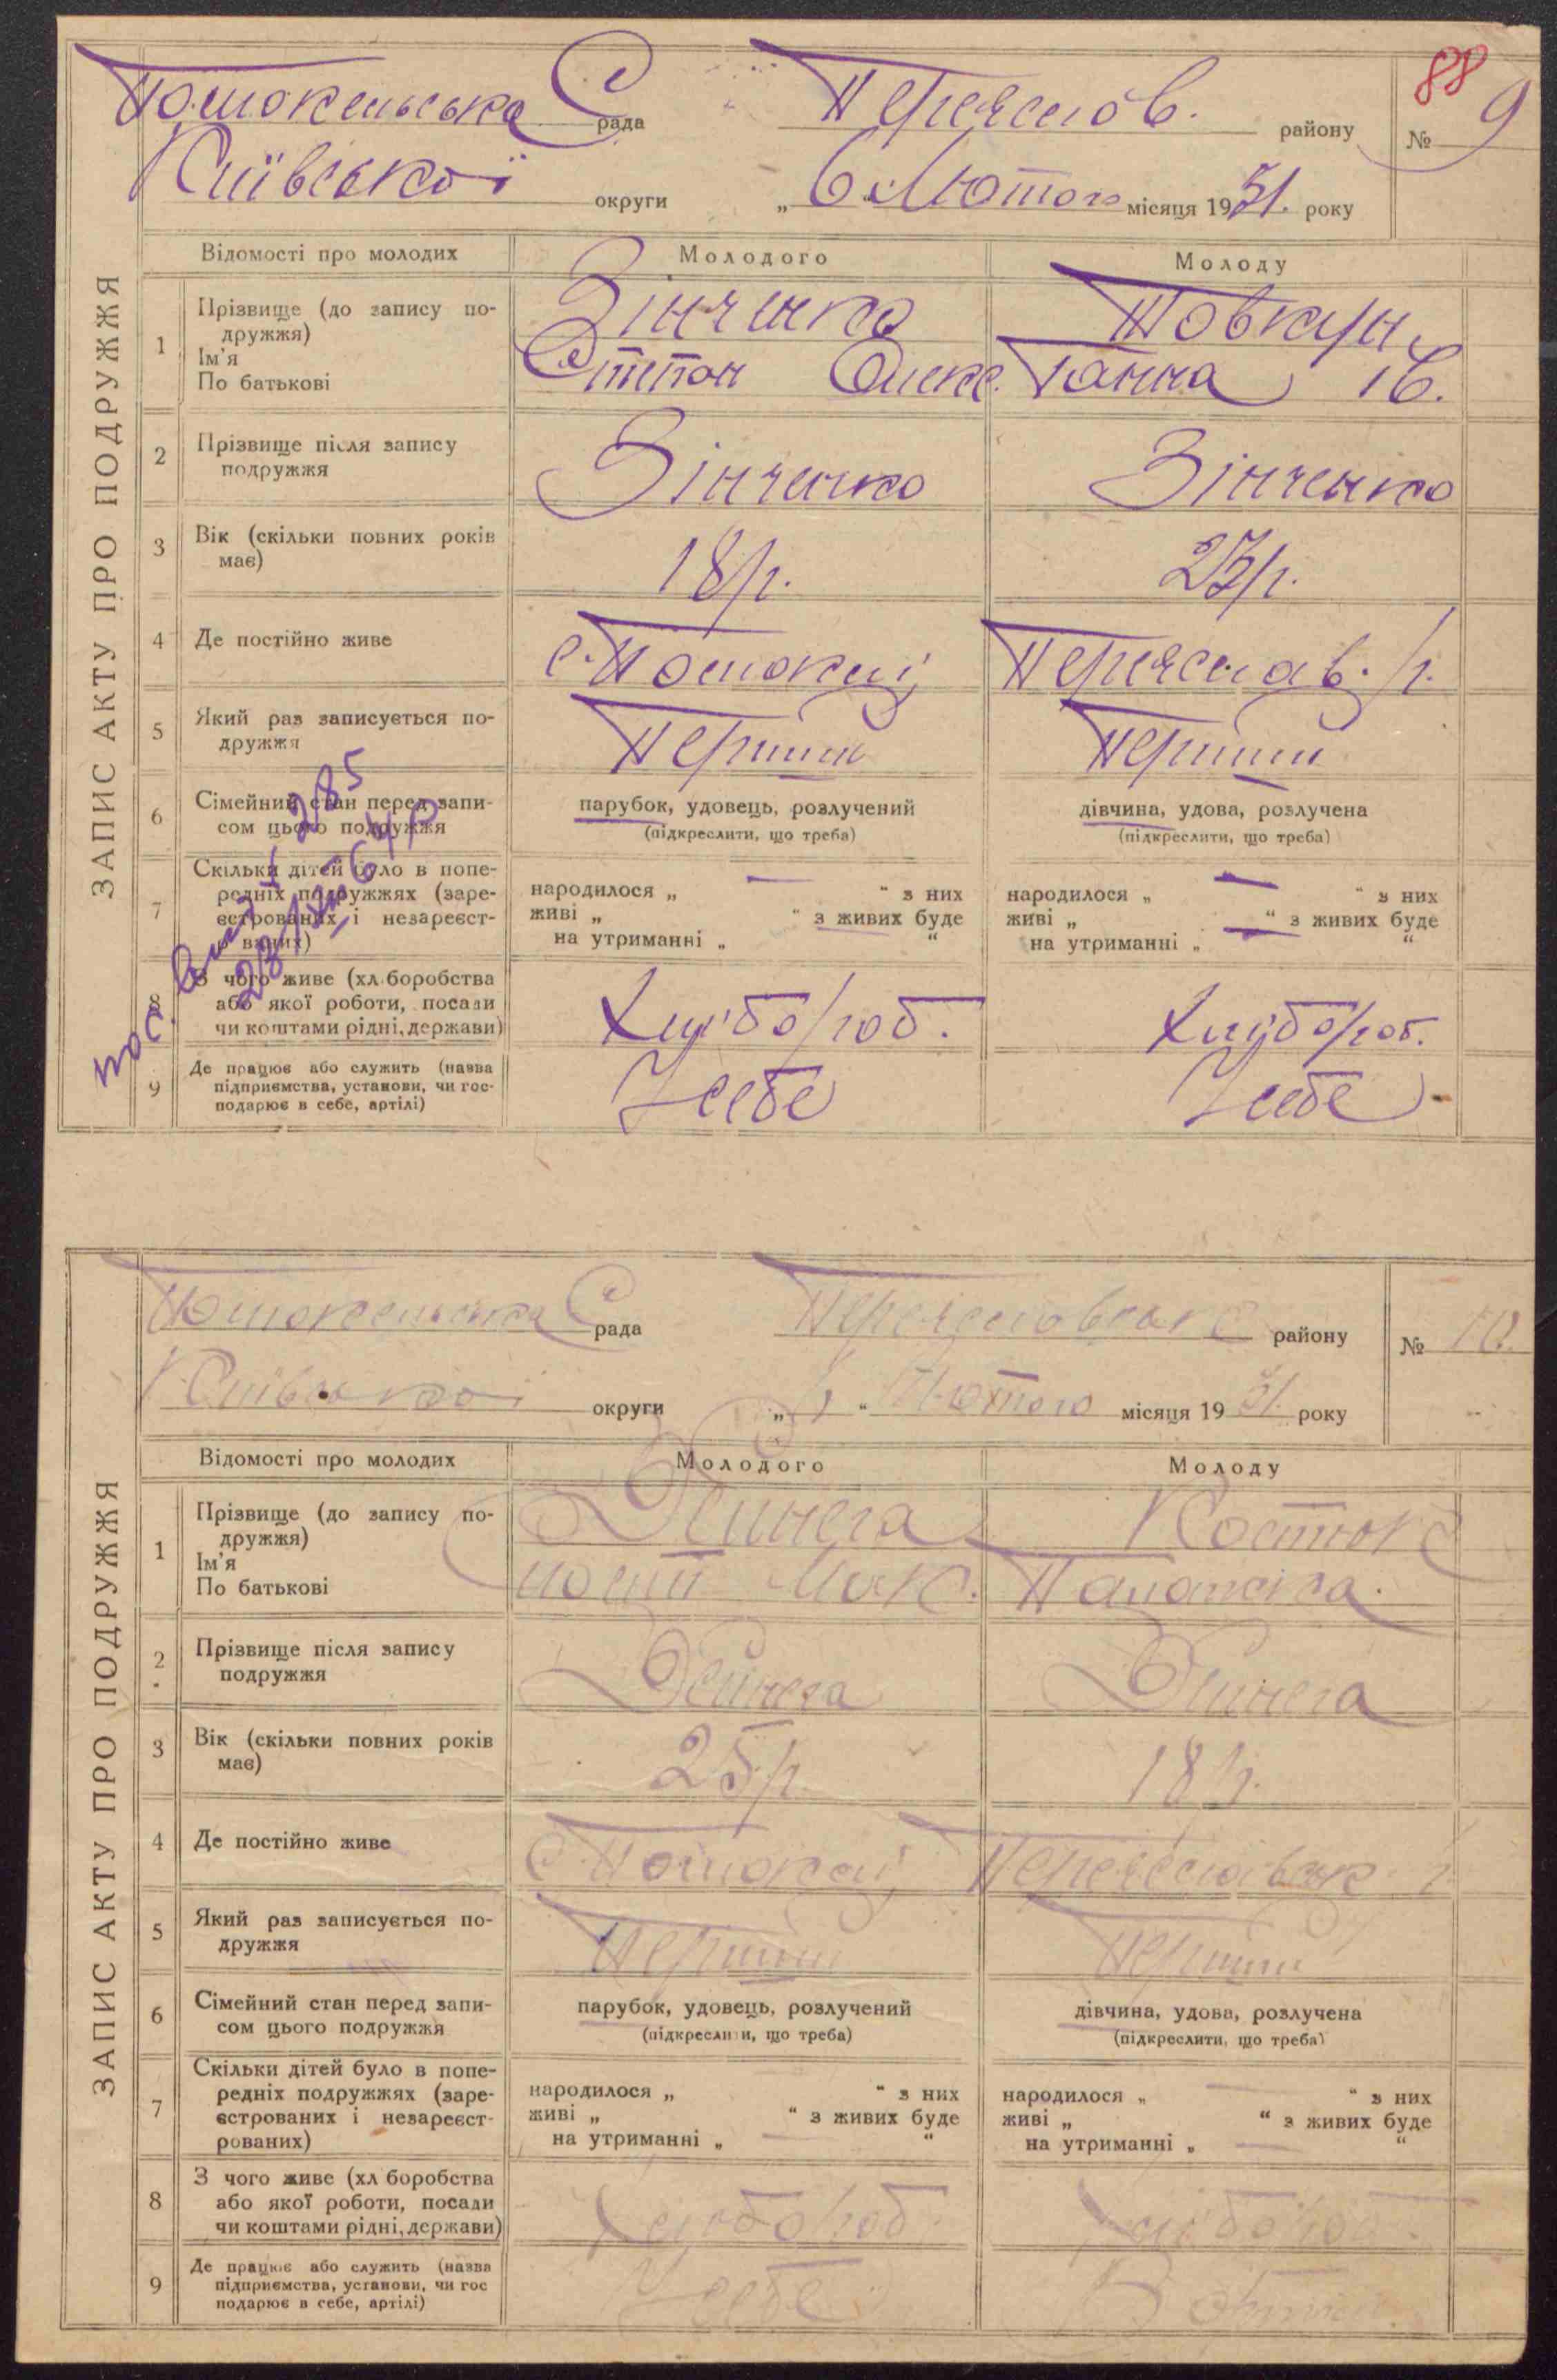 88
Помокельська С рада Переяслов. району № 9
Київської округи „ 6 " Лютого місяця 1931. року
ЗАПИС АКТУ ПРО ПОДРУЖЖЯ
Відомості про молодих Молодого Молоду
1 Прізвище (до запису по-
дружжя)
Ім'я
По батькові
Зінченко
Степан Олекс.
Товкун
Ганна Ів.
2 Прізвище після запису
подружжя
Зінченко Зінченко
3 Вік (скільки повних років
має)
18 р. 23 р.
4 Де постійно живе
с. Помоклі, Переяслав. р.
5 Який раз записується по-
дружжя
Перший Перший
6 Сімейний стан перед запи-
сом цього подружжя
парубок, удовець, розлучений
(підкреслити, що треба)
дівчина, удова, розлучена
(підкреслити, що треба)
7 Скільки дітей було в попе-
редніх подружжях (заре-
єстрованих і незареєст-
рованих)
народилося „ — " з них
живі „ " з живих буде
на утриманні „ "
народилося „ — " з них
живі „ — " з живих буде
на утриманні „ "
8 З чого живе (хліборобства
або якої роботи, посади
чи коштами рідні, держави)
Хлібороб. Хлібороб.
9 Де працює або служить (назва
підприємства, установи, чи гос-
подарює в себе, артілі)
У себе У себе
285
Помокельська С рада Переяславське району № 10.
Київської округи „ " Лютого місяця 1931. року
ЗАПИС АКТУ ПРО ПОДРУЖЖЯ
Відомості про молодих Молодого Молоду
1 Прізвище (до запису по-
дружжя)
Ім'я
По батькові
Дейнега
Мак.
Костюк
Палажка
2 Прізвище після запису
подружжя
Дейнега Дейнега
3 Вік (скільки повних років
має)
25 р. 18 р.
4 Де постійно живе
с. Помоклі, Переяславськ. р.
5 Який раз записується по-
дружжя
Перший Перший
6 Сімейний стан перед запи-
сом цього подружжя
парубок, удовець, розлучений
(підкреслити, що треба)
дівчина, удова, розлучена
(підкреслити, що треба)
7 Скільки дітей було в попе-
редніх подружжях (заре-
єстрованих і незареєст-
рованих)
народилося „ " з них
живі „ " з живих буде
на утриманні „ — "
народилося „ — " з них
живі „ " з живих буде
на утриманні „ — "
8 З чого живе (хліборобства
або якої роботи, посади
чи коштами рідні, держави)
Хлібороб. Хлібороб.
9 Де працює або служить (назва
підприємства, установи, чи гос
подарює в себе, артілі)
У себе